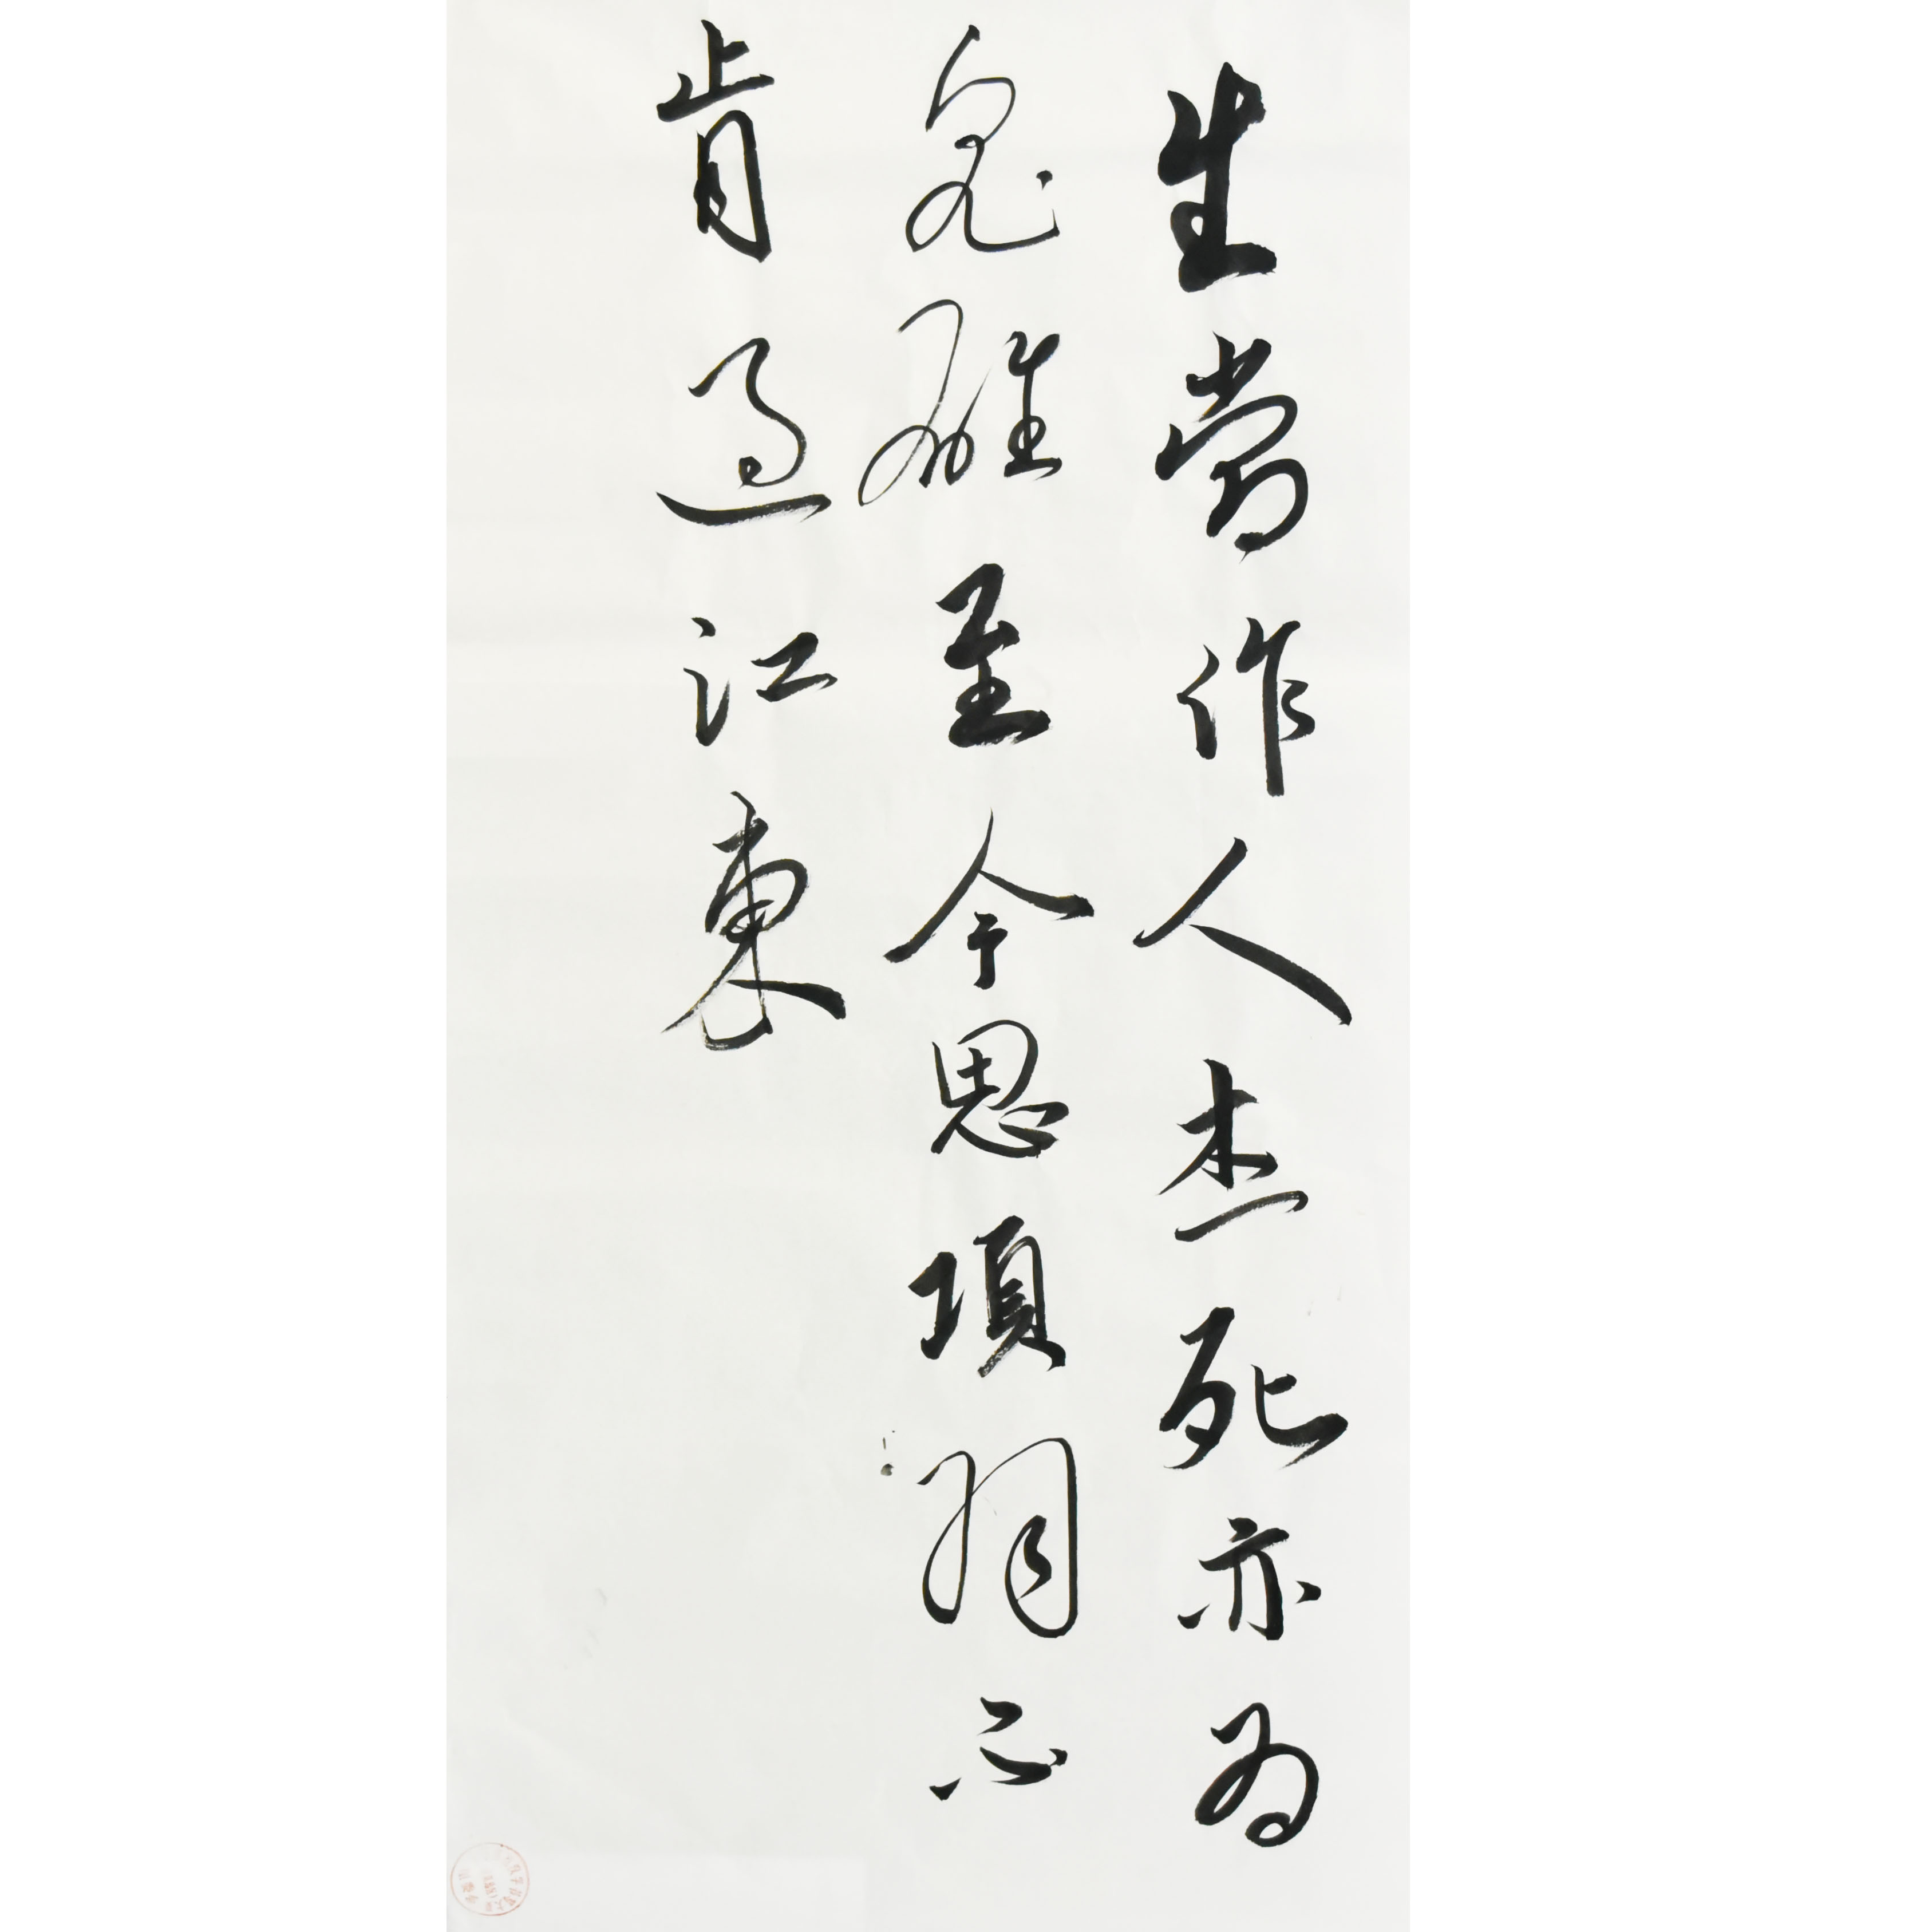 生當作人杰死亦為
鬼雄至今思項羽不
肯過江東